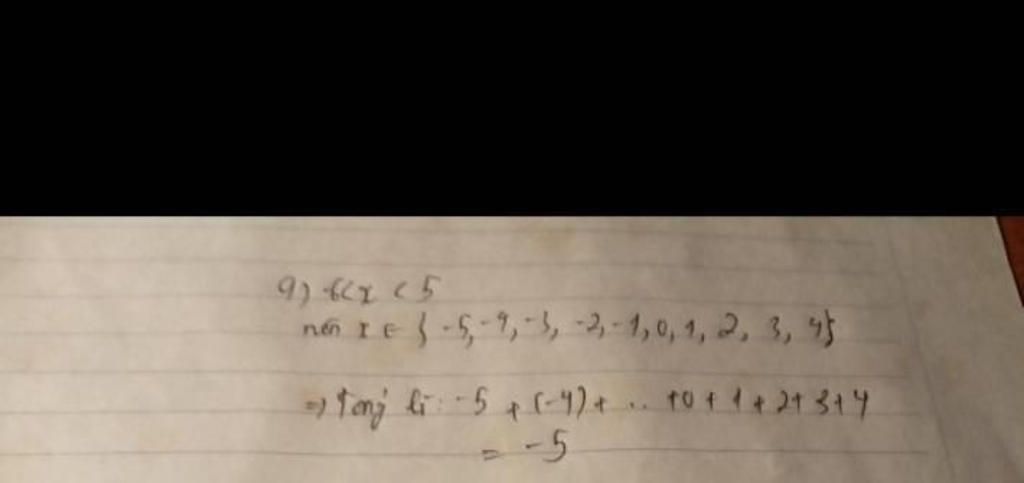 a) -6<x <5
nên x ∈ { -5, -4, -3, -2, -1, 0, 1, 2, 3, 4}
=> tổng là: -5 + (-4) + .. +0 + 1 + 2 + 3 + 4
= -5